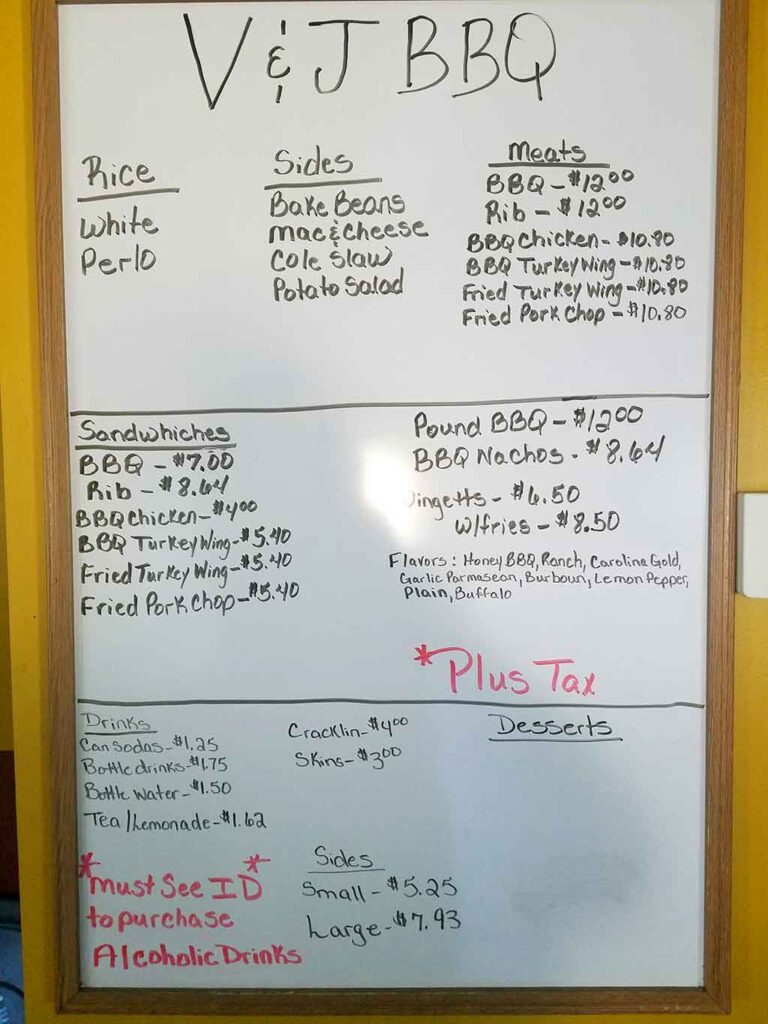 V & J BBQ
Rice
White
Perlo
Sides
Bake Beans
Mac & Cheese
Cole Slaw
Potato Salad
Meats
BBQ - $12.00
Rib - $12.00
BBQ Chicken - $10.80
BBQ Turkey Wing - $10.80
Fried Turkey Wing - $10.80
Fried Pork Chop - $10.80
Sandwhiches
BBQ - $7.00
Rib - $8.64
BBQ Chicken - $4.00
BBQ Turkey Wing - $5.40
Fried Turkey Wing - $5.40
Fried Pork Chop - $5.40
Pound BBQ - $12.00
BBQ Nachos - $8.64
ingetts - $6.50
w/fries - $8.50
Flavors: Honey BBQ, Ranch, Carolina Gold,
Garlic Parmasean, Burboun, Lemon Pepper,
Plain, Buffalo
*Plus Tax
Drinks
Can Sodas - $1.25
Bottle drinks - $1.75
Bottle Water - $1.50
Tea/Lemonade - $1.62
Cracklin - $4.00
Skins - $3.00
Desserts
*Must See ID*
to purchase
Alcoholic Drinks
Sides
Small - $5.25
Large - $7.93